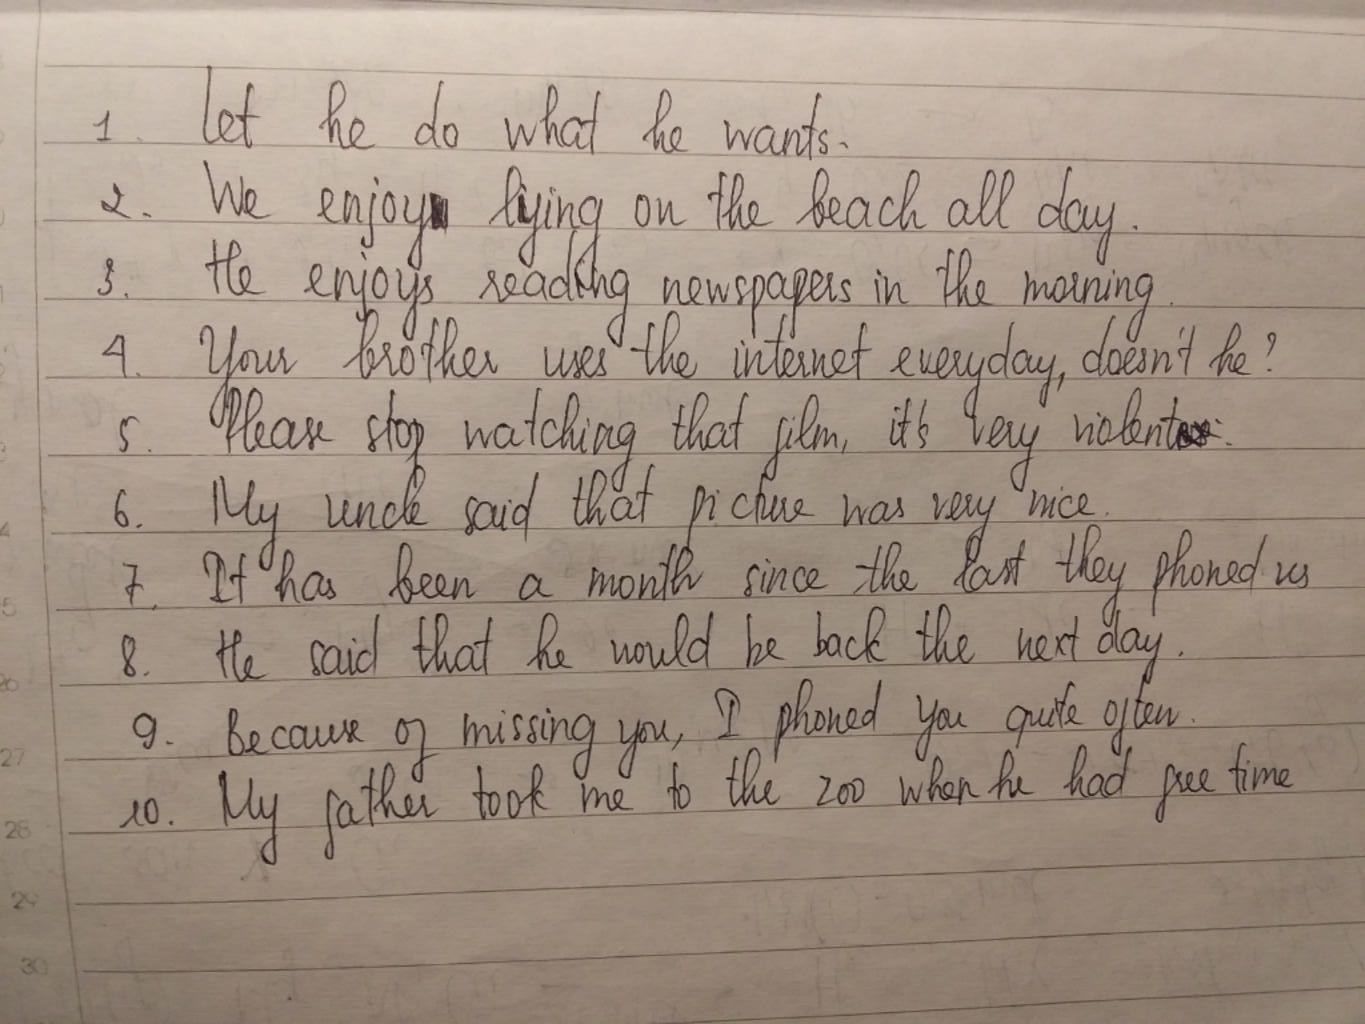 1. Let he do what he wants.
2. We enjoy lying on the beach all day.
3. He enjoys reading newspapers in the morning.
4. Your brother uses the internet everyday, doesn't he?
5. Please stop watching that film, it's very violent.
6. My uncle said that picture was very nice.
7. It has been a month since the last they phoned us
8. He said that he would be back the next day.
9. Because of missing you, I phoned you quite often.
10. My father took me to the zoo when he had free time
27
28
29
30